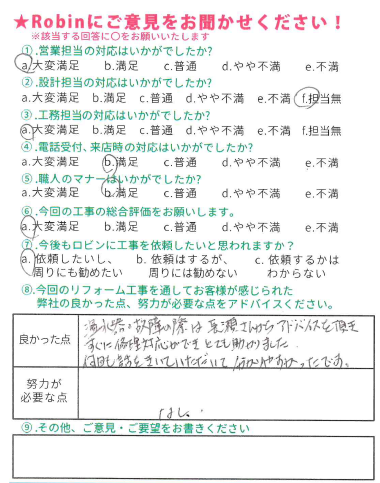 ★Robinにご意見をお聞かせください！
※該当する回答に〇をお願いいたします
①.営業担当の対応はいかがでしたか?
a.大変満足 b.満足 c.普通 d.やや不満 e.不満
②.設計担当の対応はいかがでしたか?
a.大変満足 b.満足 c.普通 d.やや不満 e.不満 f.担当無
③.工務担当の対応はいかがでしたか?
a.大変満足 b.満足 c.普通 d.やや不満 e.不満 f.担当無
④.電話受付、来店時の対応はいかがでしたか?
a.大変満足 b.満足 c.普通 d.やや不満 e.不満
⑤.職人のマナーはいかがでしたか?
a.大変満足 b.満足 c.普通 d.やや不満 e.不満
⑥.今回の工事の総合評価をお願いします。
a.大変満足 b.満足 c.普通 d.やや不満 e.不満
⑦.今後もロビンに工事を依頼したいと思われますか？
a.依頼したいし、 b.依頼はするが、 c.依頼するかは
周りにも勧めたい 周りには勧めない わからない
⑧.今回のリフォーム工事を通してお客様が感じられた
弊社の良かった点、努力が必要な点をアドバイスください。
良かった点
の故障の際は さんからアドバイスを頂き
すぐに修理対応ができとても助かりました
話をきいていただいて 分かりやすかったです。
努力が
必要な点
なし。
⑨.その他、ご意見・ご要望をお書きください